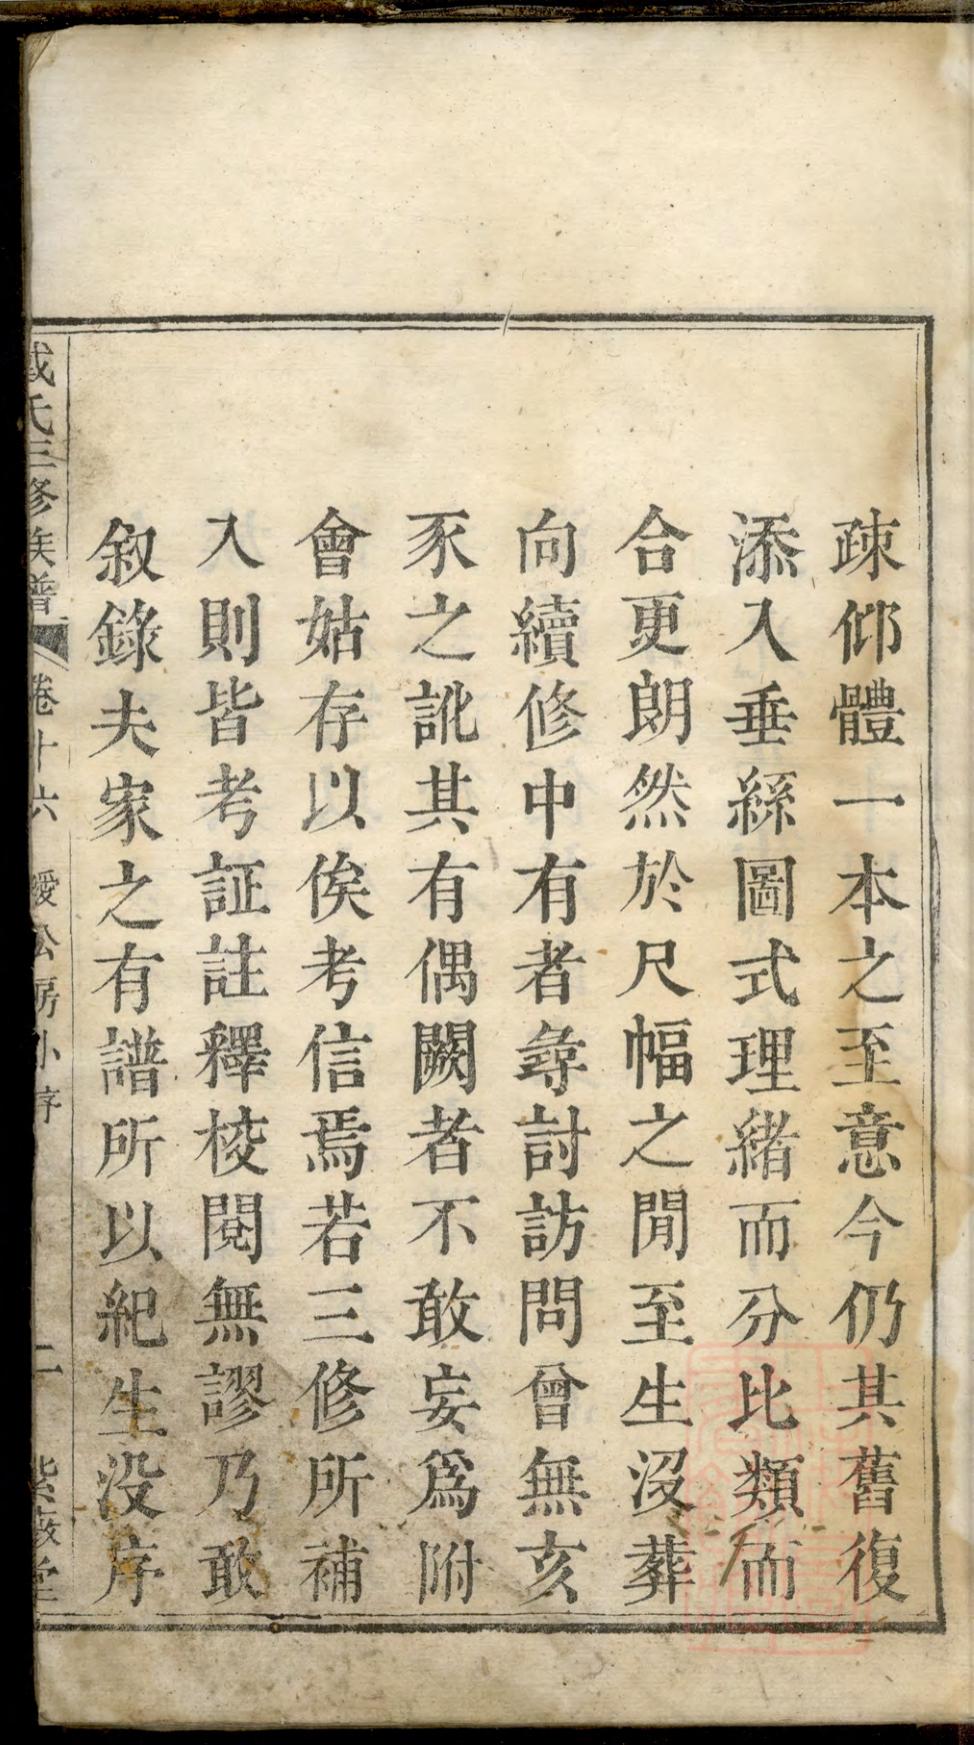 疎仰體一本之至意今仍其舊復
添入垂絲圖式理緒而分比類而
合更朗然於尺幅之閒至生沒葬
向續修中有者尋討訪問曾無亥
豕之訛其有偶闕者不敢妄爲附
會姑存以俟考信焉若三修所補
入則皆考証註釋校閱無謬乃敢
敘錄夫家之有譜所以紀生没序
戴氏三修族譜 卷十六 公房小序 二 紫薇堂